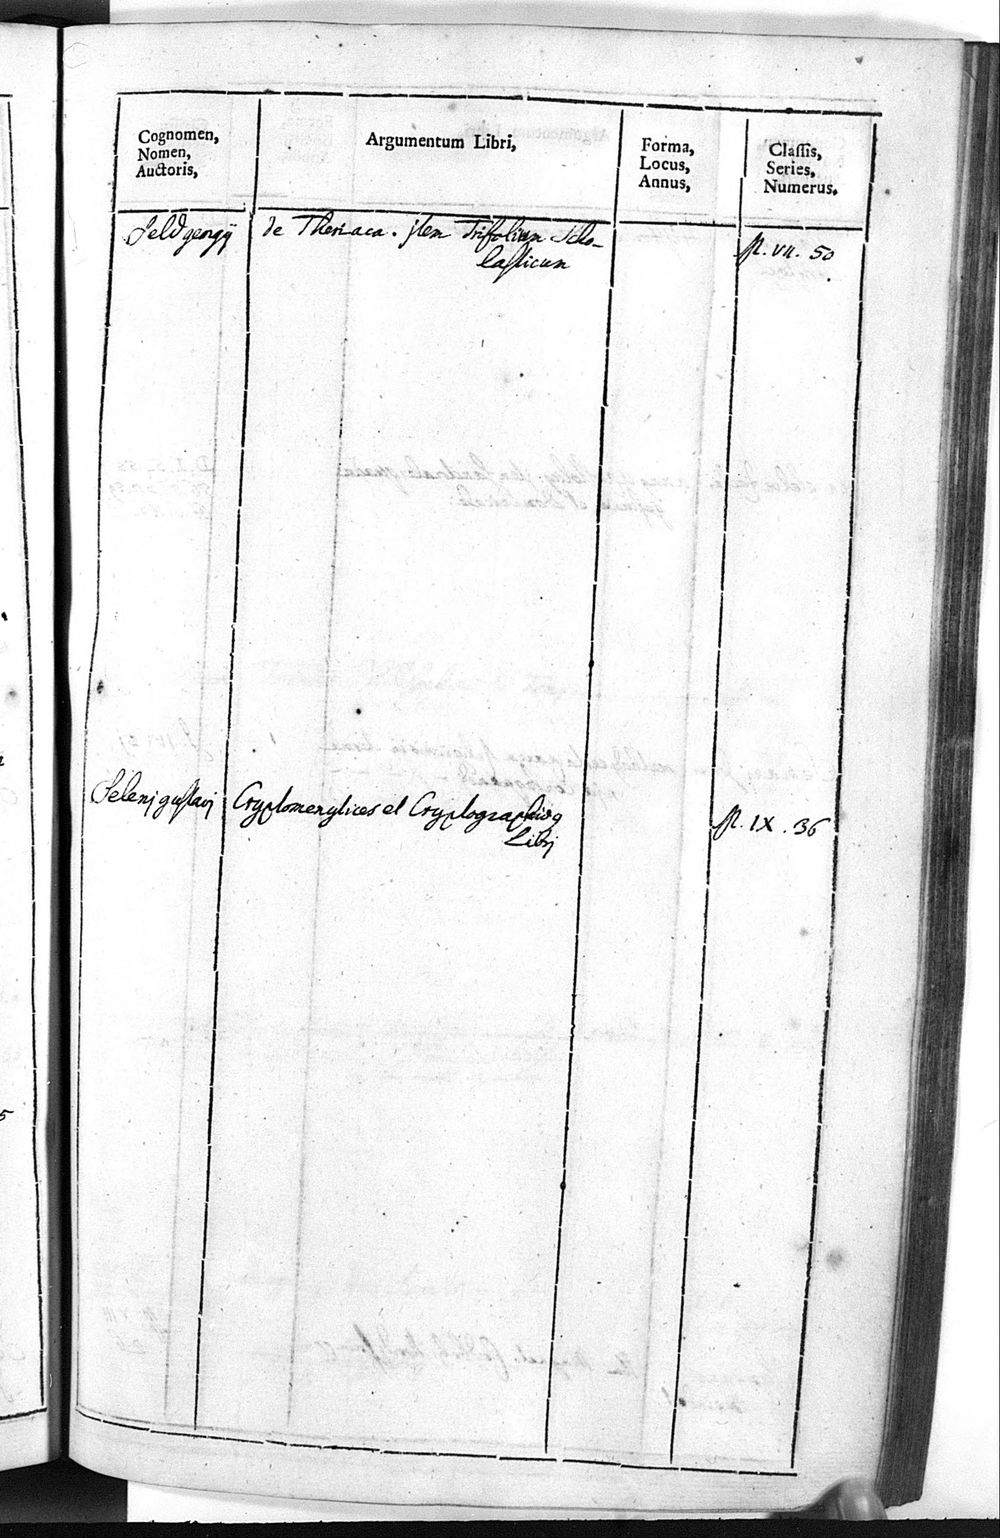 Cognomen,
Nomen,
Auctoris,
Argumentum Libri,
Forma,
Locus,
Annus,
Classis,
Series,
Numerus.
Seld georgij de Theriaca. jtem Trifolium Scho-
lasticum
VII. 50
Selenj gustavj Cryptomenytices et Cryptographiae
Librj
IX. 36